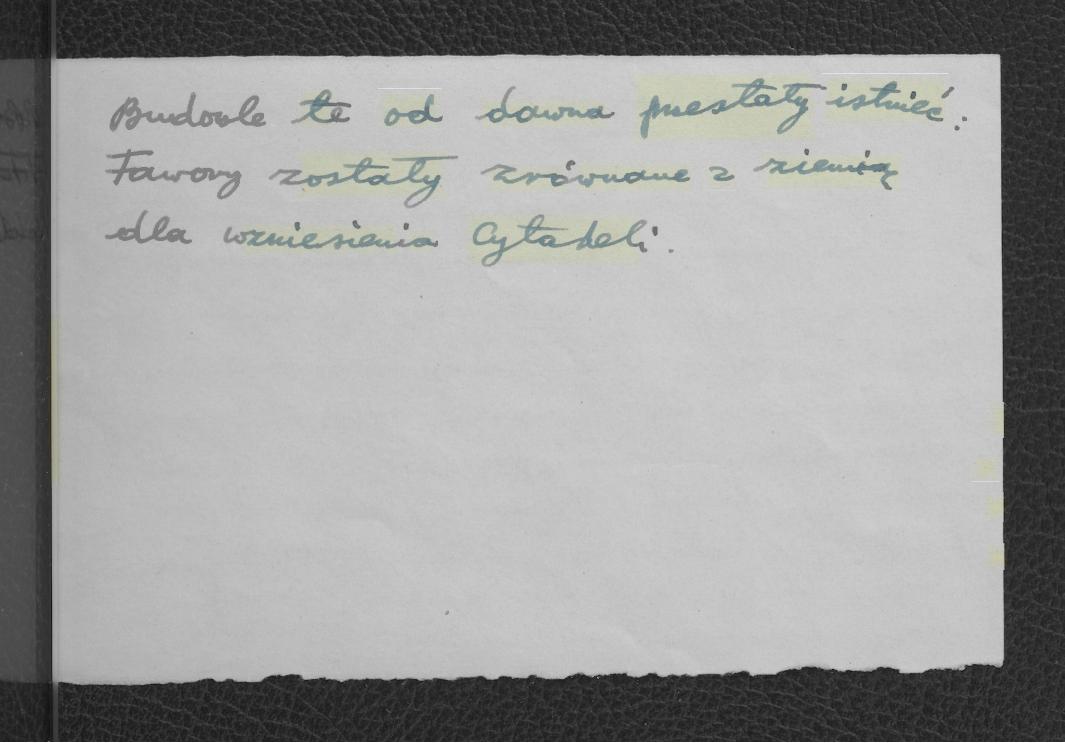 Budowle te od dawna przestały istnieć.
Fawory zostały zrównane z ziemią
dla wzniesienia Cytadeli.